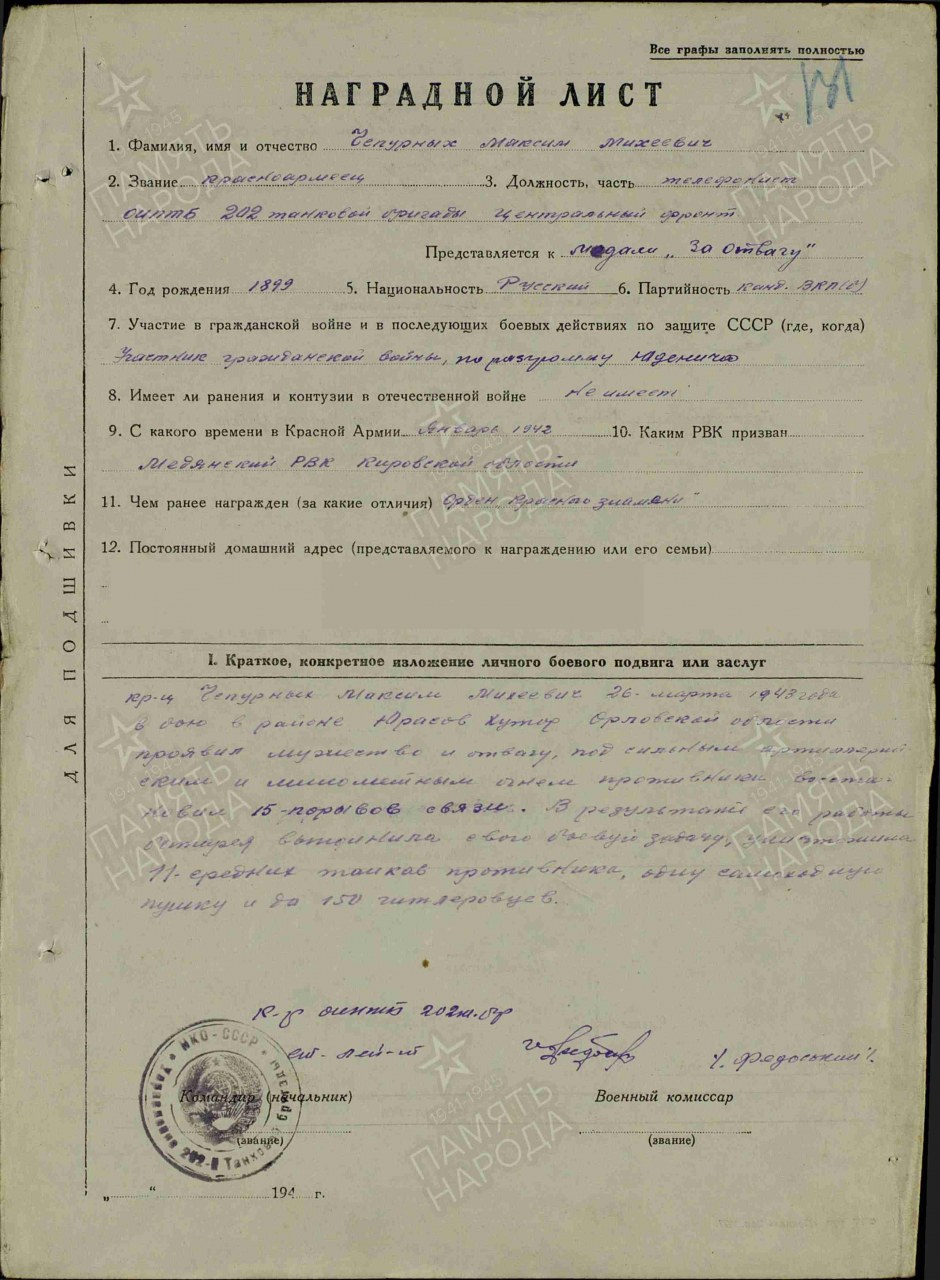 Все графы заполнять полностью
131
НАГРАДНОЙ ЛИСТ
1. Фамилия, имя и отчество Чепурных Максим Михеевич
2. Звание красноармеец 3. Должность, часть телефонист
ОИПТБ 202 танковой бригады Центральный фронт
Представляется к медали „За отвагу"
4. Год рождения 1899 5. Национальность Русский 6. Партийность канд. ВКП(б)
7. Участие в гражданской войне и в последующих боевых действиях по защите СССР (где, когда)
Участник гражданской войны, по разгрому Юденича
8. Имеет ли ранения и контузии в отечественной войне Не имеет
9. С какого времени в Красной Армии Январь 1942 10. Каким РВК призван
Медянский РВК Кировской области
11. Чем ранее награжден (за какие отличия) Орден Красного знамени"
12. Постоянный домашний адрес (представляемого к награждению или его семьи)
ДЛЯ ПОДШИВКИ
I. Краткое, конкретное изложение личного боевого подвига или заслуг
кр-ц Чепурных Максим Михеевич 26 марта 1943 года
в бою в районе Юрасов Хутор Орловской области
проявил мужество и отвагу, под сильным артиллерий
ским и минометным огнем противника восста-
новил 15-порывов связи. В результате его работы
батарея выполнила свою боевую задачу, уничтожила
11-средних танков противника, одну самоходную
пушку и до 150 гитлеровцев.
К-р оиптб 202 т.бр
ст. лей-т /. Федоский /.
Командир (начальник) Военный комиссар
(звание) (звание)
„ " 194 г.
НКО-СССР
202-й Танковой
ПАМЯТЬ НАРОДА
1941-1945